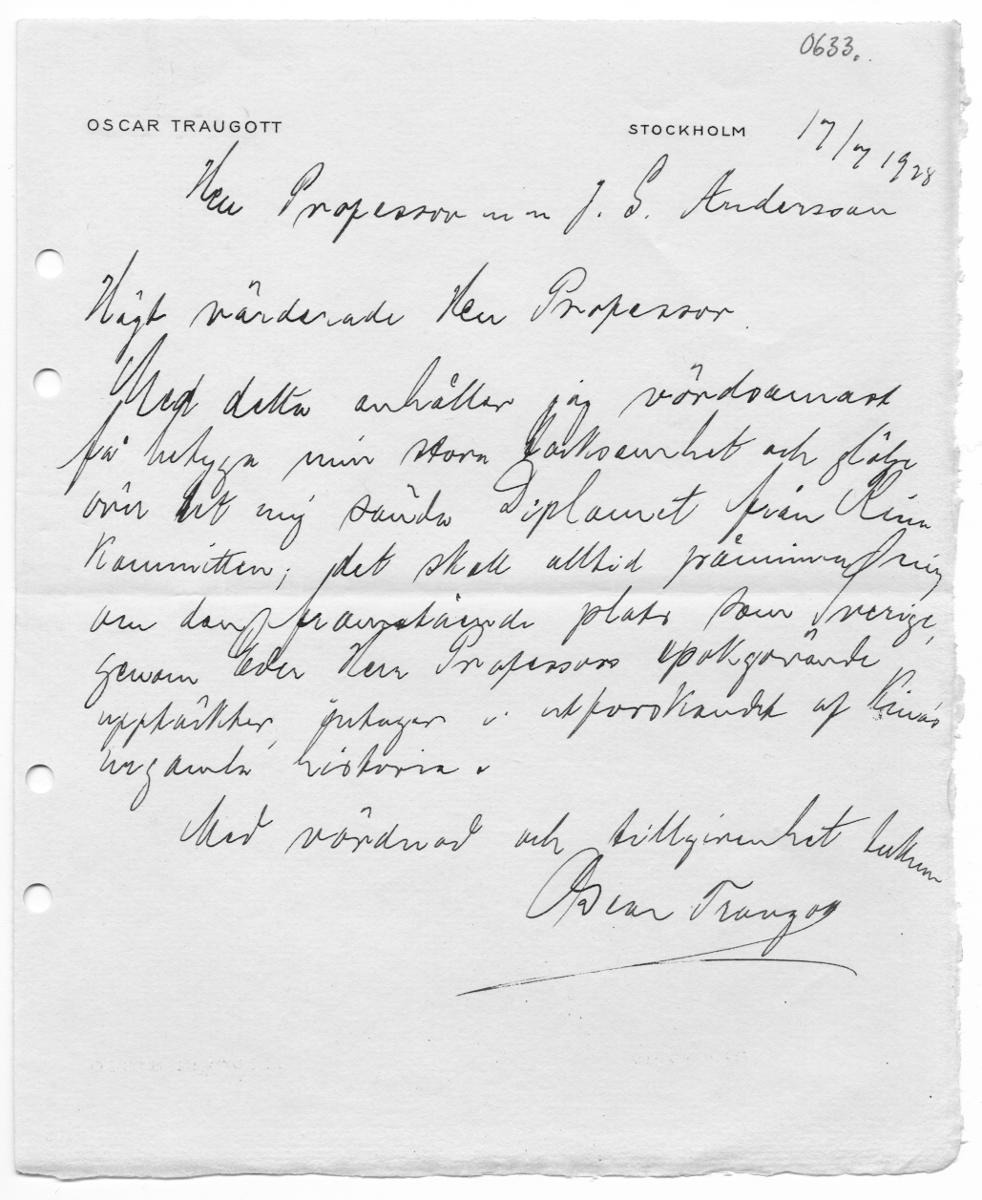 0633.
OSCAR TRAUGOTT STOCKHOLM 17/7 1928
Herr Professor m m J. G. Andersson
Högt värderade Herr Professor
Med detta anhåller jag vördsammast
få betyga min stora tacksamhet och glädje
över det mig sända Diplomet från Kina
Kommitten; det skall alltid påminna mig
om den framstående plats som Sverige,
genom Eder Herr Professors epokgörande
upptäckter, intager i utforskandet af Kinas
urgamla historia.
Med vördnad och tillgivenhet
Oscar Traugott